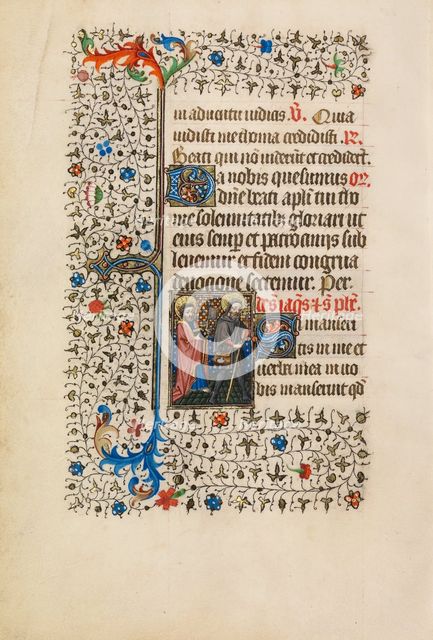 in adventu iudicis V. Quia
vidisti me thoma credidisti R.
Beati qui nō viderūt et crediderūt
Da nobis quesumus
dn̄e beati apl̄i tui tho
me solennitatib; gloriari ut
eius semp̄ et patrocinijs sub
levemur et fidem congrua
devocione sectemur. Per
Si manseri
tis in me et
verba mea in vo
bis manserint qd̄